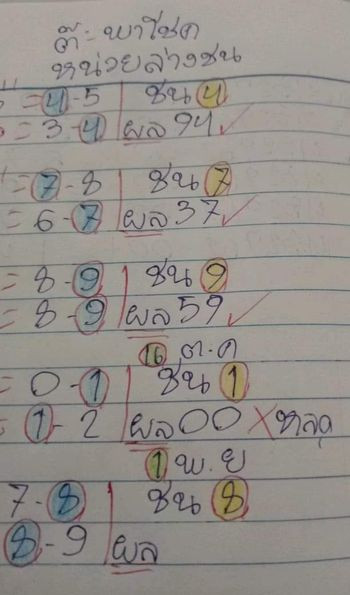 ต๊ะ พาโชค
หน่วยล่างชน
= 4-5 | ชน 4
= 3-4 | ผล 94 ✓
= 7-8 | ชน 7
= 6-7 | ผล 37 ✓
= 8-9 | ชน 9
= 8-9 | ผล 59 ✓
16 ต.ค
= 0-1 | ชน 1
= 1-2 | ผล 00 X หลุด
1 พ.ย
7-8 | ชน 8
8-9 | ผล